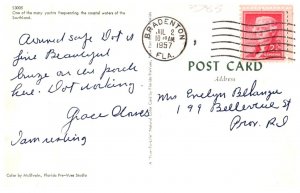 S3005
One of the many yachts frequenting the coastal waters of the
Southland.
Arrived safe Dot is
fine Beautiful
breeze on the porch
here. Dot working
Grace
I am resting
Color by McGivern, Florida Pre-Vue Studio
BRADENTON
JUL 2
10 AM
1957
FLA.
POST CARD
Address
Mrs Evelyn Belanger
199 Bellevue St
Prov. R I